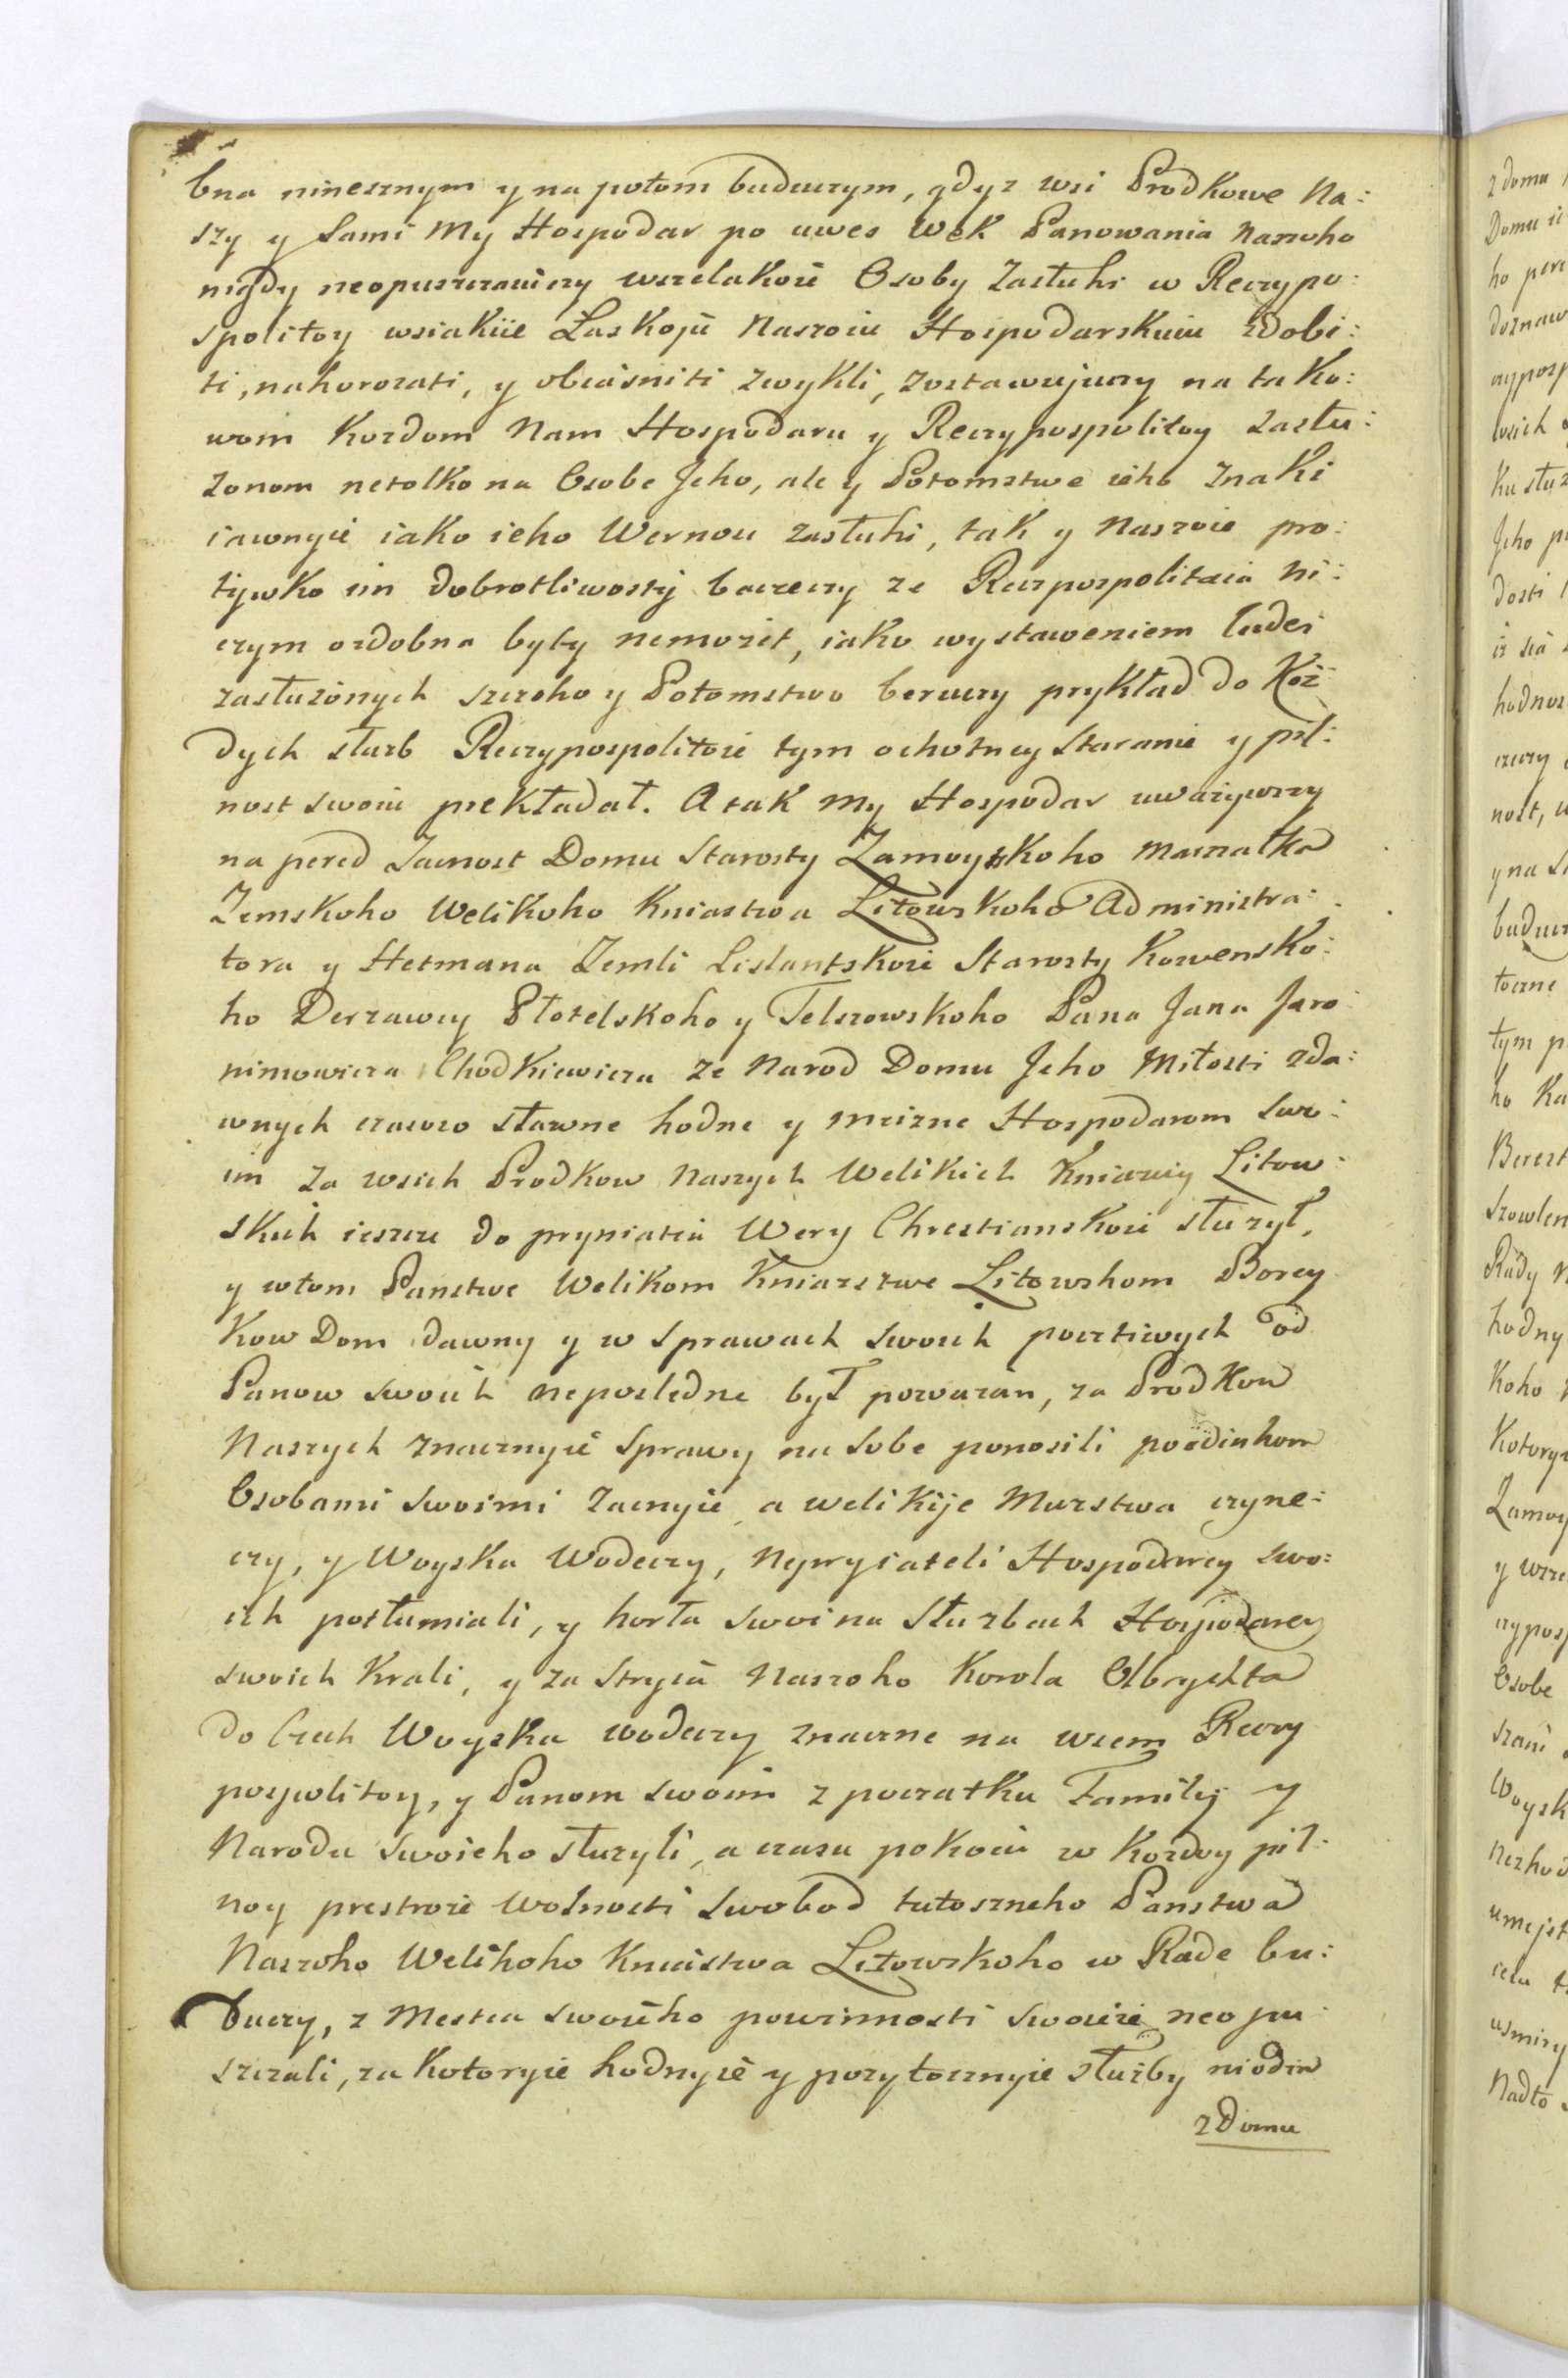 bna ninesznym y na potom buduczym, gdyz wsi Prodkowe Na:
szy y Sami My Hospodar po uwes Wek Panowania Naszoho
nigdy neopuszczaiuczy wszelakoie Osoby Zasłuhi w Reczypo:
spolitoy wsiakiie Łaskoju Naszoiu Hospodarskuiu zdobi:
ti, nahorozati, y obiasniti zwykli, zostawujuczy na tako:
wom Kozdom Nam Hospodaru y Reczypospolitoy zasłu:
zonom netolko na Osobe Jeho, ale y Potomstwe ieho Znaki
iawnyie iako ieho Wernou zasłuhi, tak y Naszoie pro:
tywko im dobrotliwosty baczeczy ze Reczpospolitaia ni:
czym ozdobna byty nemoziet, iako wystaweniem ludei
zasłuzonych szczoho y Potomstwo beruczy prykład do Koż:
dych słuzb Reczypospolitoie tym ochotney Staranie y pil:
nost swoiu prekładał. A tak My Hospodar uważywszy
na pered Zacnost Domu Starosty Zamoytskoho Marszałka
Zemskoho Welikoho Kniastwa Litowskoho Administra:
tora y Hetmana Zemli Lislantskoie Starosty Kowensko:
ho Derzawcy Płotelskoho y Telszowskoho Pana Jana Jaro
nimowicza Chodkiewicza ze Narod Domu Jeho Miłosti zda:
wnych czasow sławne hodne y mezne Hospodarom swo:
im za wsich Prodkow Naszych Welikich Kniaziey Litow:
skich ieszcze do pryniatia Wery Chrestianskoie słuzył,
y wtom Panstwe Welikom Kniazstwe Litowskom Borey
Kow Dom dawny y w sprawach swoich poczitiwych od
Panow swoich neposledne był powazan, za Prodkow
Naszych znacznyie Sprawy na sobe ponosili poodinkom
Osobami swoimi Zacnyie, a welikije Muzstwa czyne:
czy, y Woyska Wodeczy, Nepryiateli Hospodarey swo:
ich postumiali, y horła swoi na Służbach Hospodarey
swoich Krali, y za Stryia Naszoho Korola Olbrychta
do Czech Woyska wodeczy znaczne na wsem Reczy
pospolitoy, y Panom swoim z poczatku Familij y
Narodu Swoieho służyli, a czasu pokoiu w Kozdoy pil:
noy prestroie Wolnosti Swobod tutoszneho Panstwa
Naszoho Welikoho Kniastwa Litowskoho w Rade bu:
duczy, z Mestca swoieho powinnosti Swoieie neopu:
szczali, za kotoryie hodnyie y pozytocznyie służby niodin
z Domu